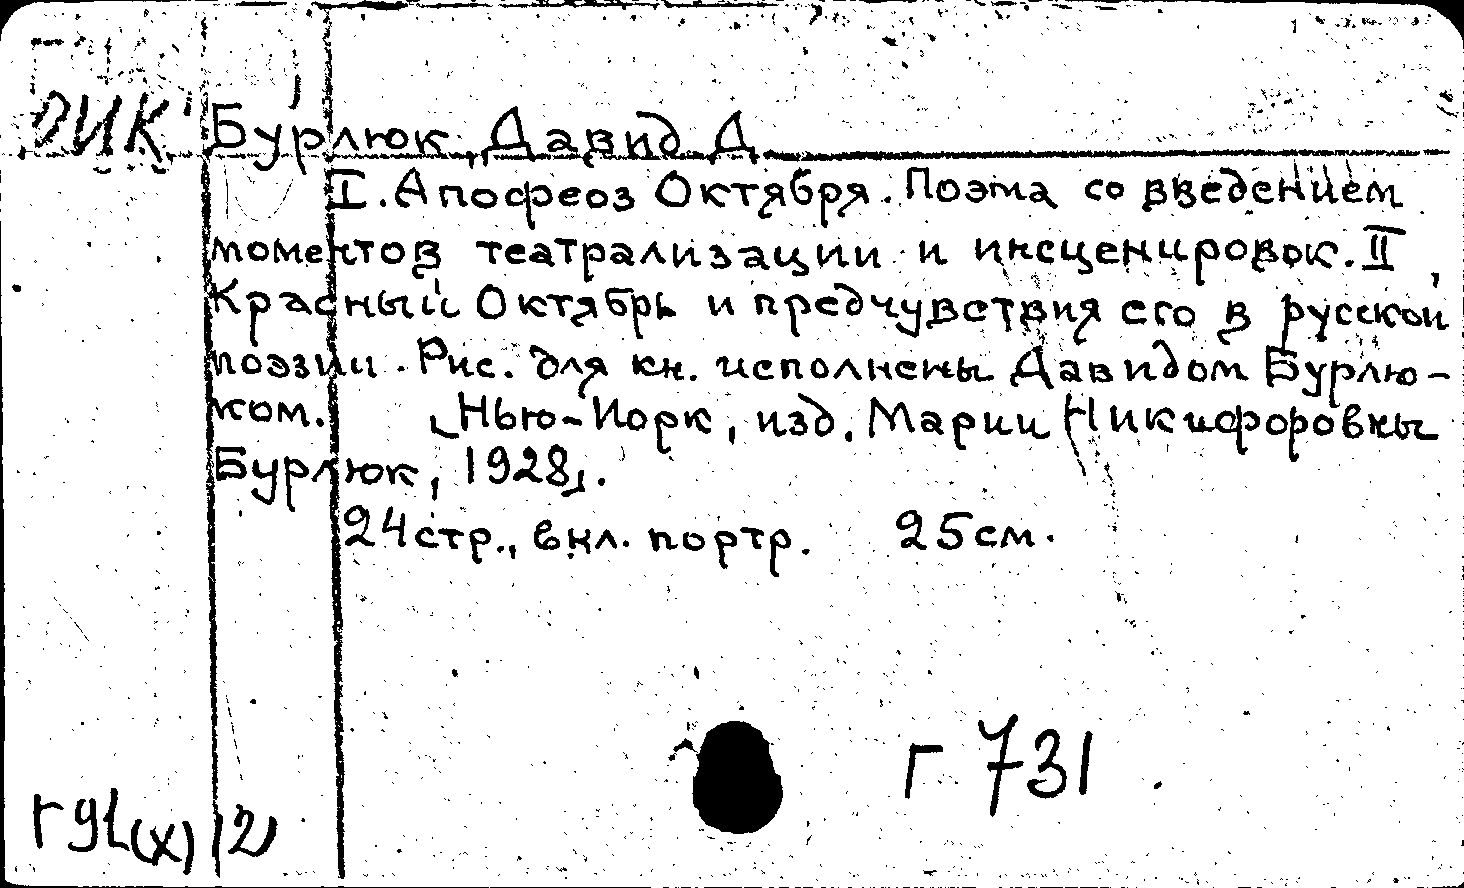 ОИК
Бурлюк, Давид Д
I. Апофеоз Октября. Поэма со введением
моментов театрализации и инсценировок. II
Красный Октябрь и предчувствия его в русской
поэзии. Рис. для кн. исполнены Давидом Бурлю-
ком. [Нью-Иорк, изд. Марии Никифоровны
Бурлюк, 1928].
24 стр., вкл. портр. 25 см.
Г 731